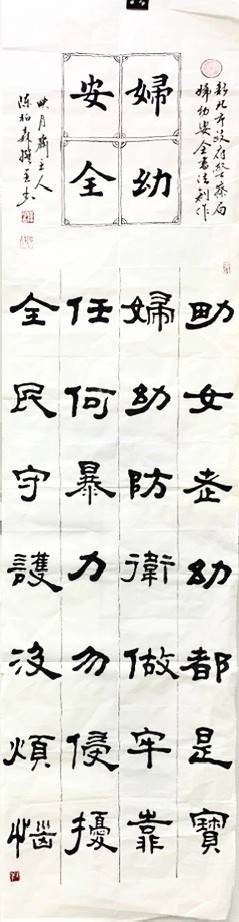 新北市政府警察局
婦幼安全書法創作
婦幼
安全
映月齋主人
陳柏森撰並書
男女老幼都是寶
婦幼防衛做牢靠
任何暴力勿侵擾
全民守護沒煩惱